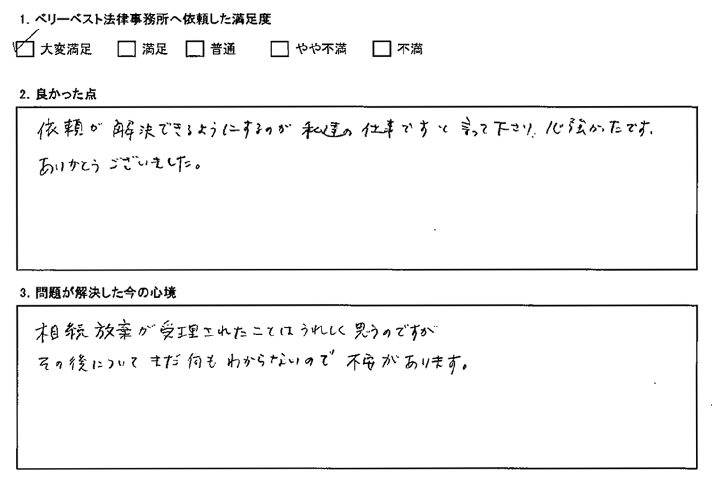 1. ベリーベスト法律事務所へ依頼した満足度
☑ 大変満足 □ 満足 □ 普通 □ やや不満 □ 不満
2. 良かった点
依頼が解決できるようにするのが私達の仕事ですと言って下さり、心強かったです。
ありがとうございました。
3. 問題が解決した今の心境
相続放棄が受理されたことはうれしく思うのですが
その後についてまだ何もわからないので不安があります。